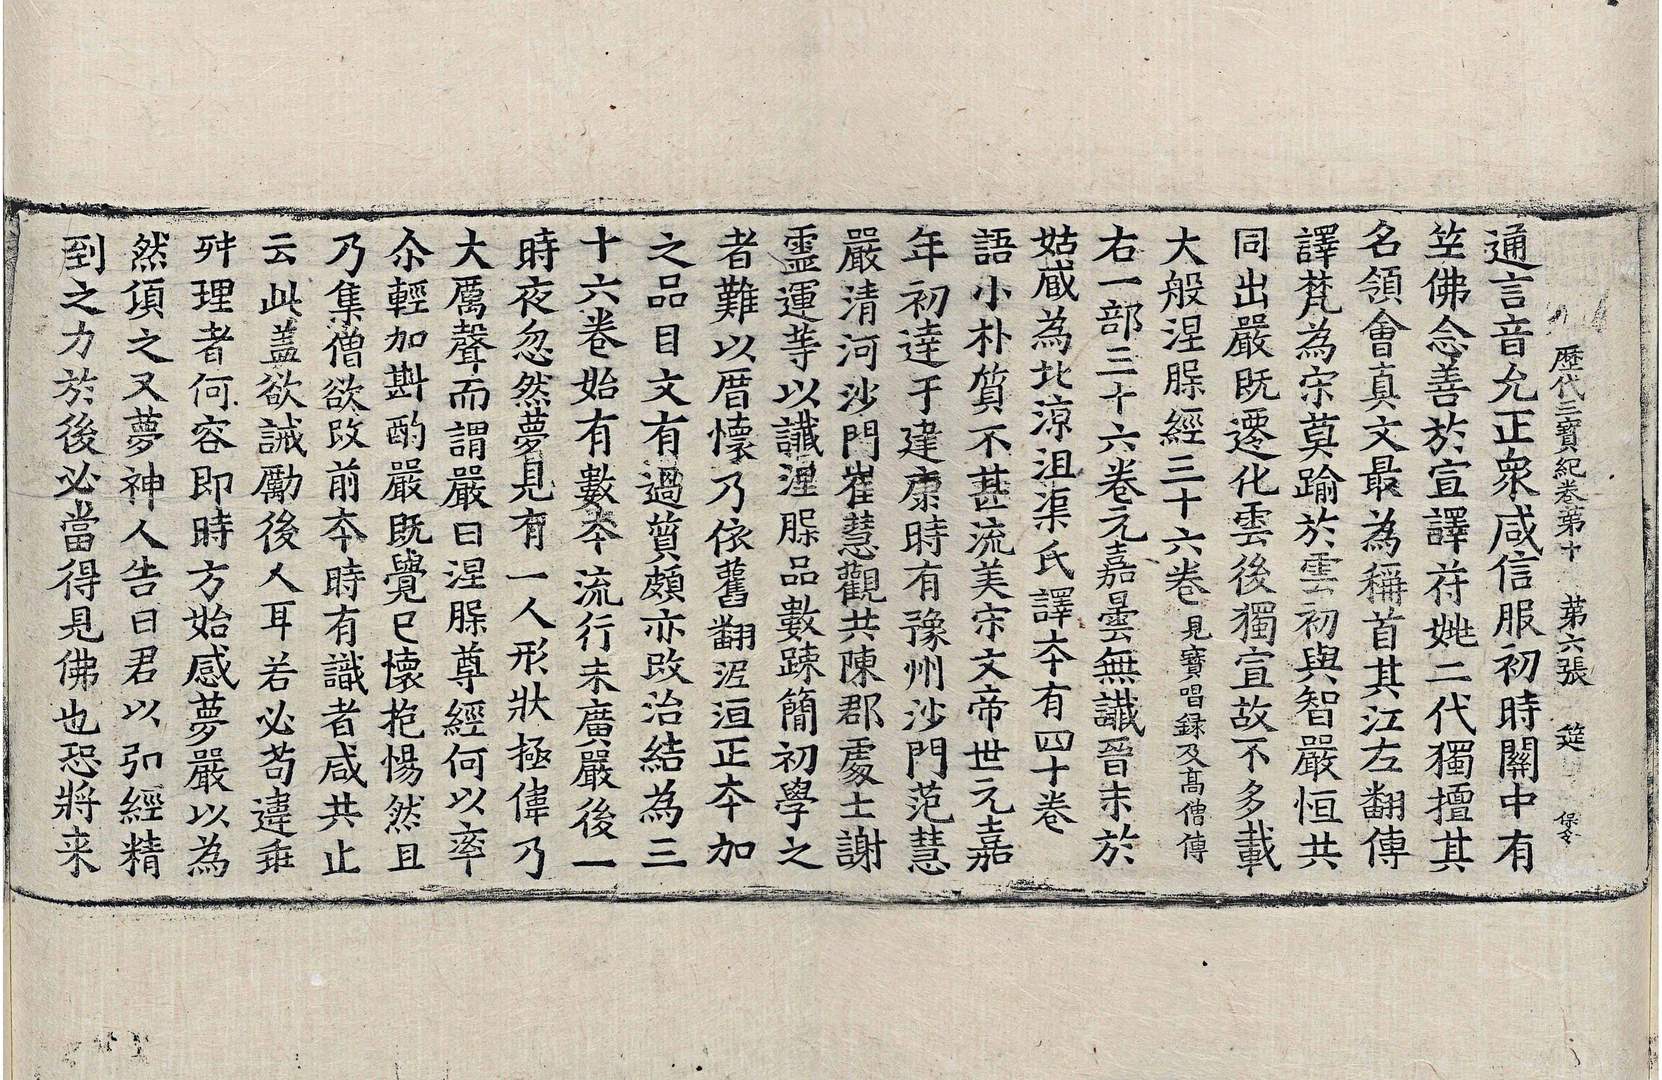 歷代三寶紀卷第十 第六張 筵 保令
通言音允正衆咸信服初時關中有
竺佛念善於宣譯苻姚二代獨擅其
名領會真文最為稱首其江左翻傳
譯梵為宋莫踰於雲初與智嚴恒共
同出嚴既遷化雲後獨宣故不多載
大般涅槃經三十六卷見寶唱錄及髙僧傳
右一部三十六卷元嘉曇雲無讖晉末於
姑臧為北涼沮渠氏譯夲有四十卷
語小朴質不甚流美宋文帝世元嘉
年初達于建康時有豫州沙門范慧
嚴清河沙門崔慧觀共陳郡處士謝
靈運等以讖涅槃品數踈簡初學之
者難以厝懷乃依舊翻泥洹正夲加
之品目文有過質頗亦改治結為三
十六卷始有數夲流行未廣嚴後一
時夜忽然夢見有一人形狀極偉乃
大厲聲而謂嚴曰涅槃尊經何以率
尒輕加斟酌嚴既覺已懷抱惕然且
乃集僧欲改前夲時有識者咸共止
云此蓋欲誡勵後人耳若必苟違乖
舛理者何容即時方始感夢嚴以為
然湏之又夢神人告曰君以弘經精
到之力於後必當得見佛也恐將来